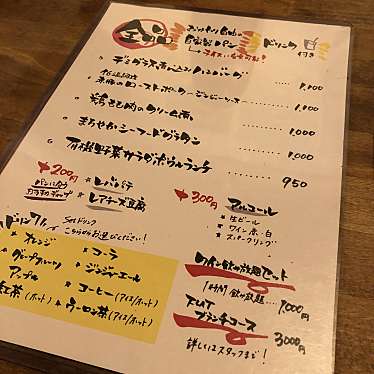 全品
自家製パン
ドリンク
付き
デミグラス煮込みハンバーグ 1,100
ローストポーク ジンジーソース 1,000
鶏もも肉のクリーム煮 1,000
まろやかシーフードグラタン 1,000
有機野菜サラダボウルランチ 950
+200円
レバパテ
レアチーズ豆腐
+300円
アルコール
生ビール
ワイン 赤・白
スパークリング
ドリンク
Setドリンク
こちらからお選びください!
オレンジ
グレープフルーツ
アップル
紅茶(ホット)
コーラ
ジンジャエール
コーヒー(アイス/ホット)
ウーロン茶(アイス/ホット)
ワイン飲み放題セット
飲み放題 1,000円
ブランチコース 3,000円
詳しくはスタッフまで!